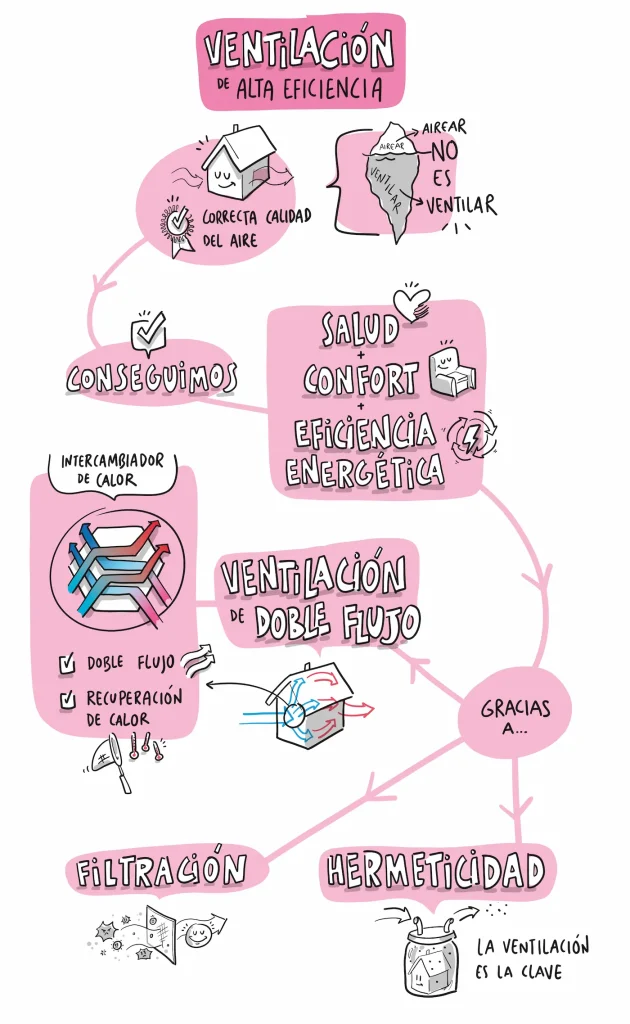 VENTILACIÓN
DE ALTA EFICIENCIA
CORRECTA CALIDAD
DEL AIRE
AIREAR
AIREAR
NO
ES
VENTILAR
VENTILAR
CONSEGUIMOS
SALUD
+
CONFORT
+
EFICIENCIA
ENERGÉTICA
INTERCAMBIADOR
DE CALOR
DOBLE FLUJO
RECUPERACIÓN
DE CALOR
VENTILACIÓN
DE DOBLE FLUJO
GRACIAS
A...
FILTRACIÓN
HERMETICIDAD
LA VENTILACIÓN
ES LA CLAVE